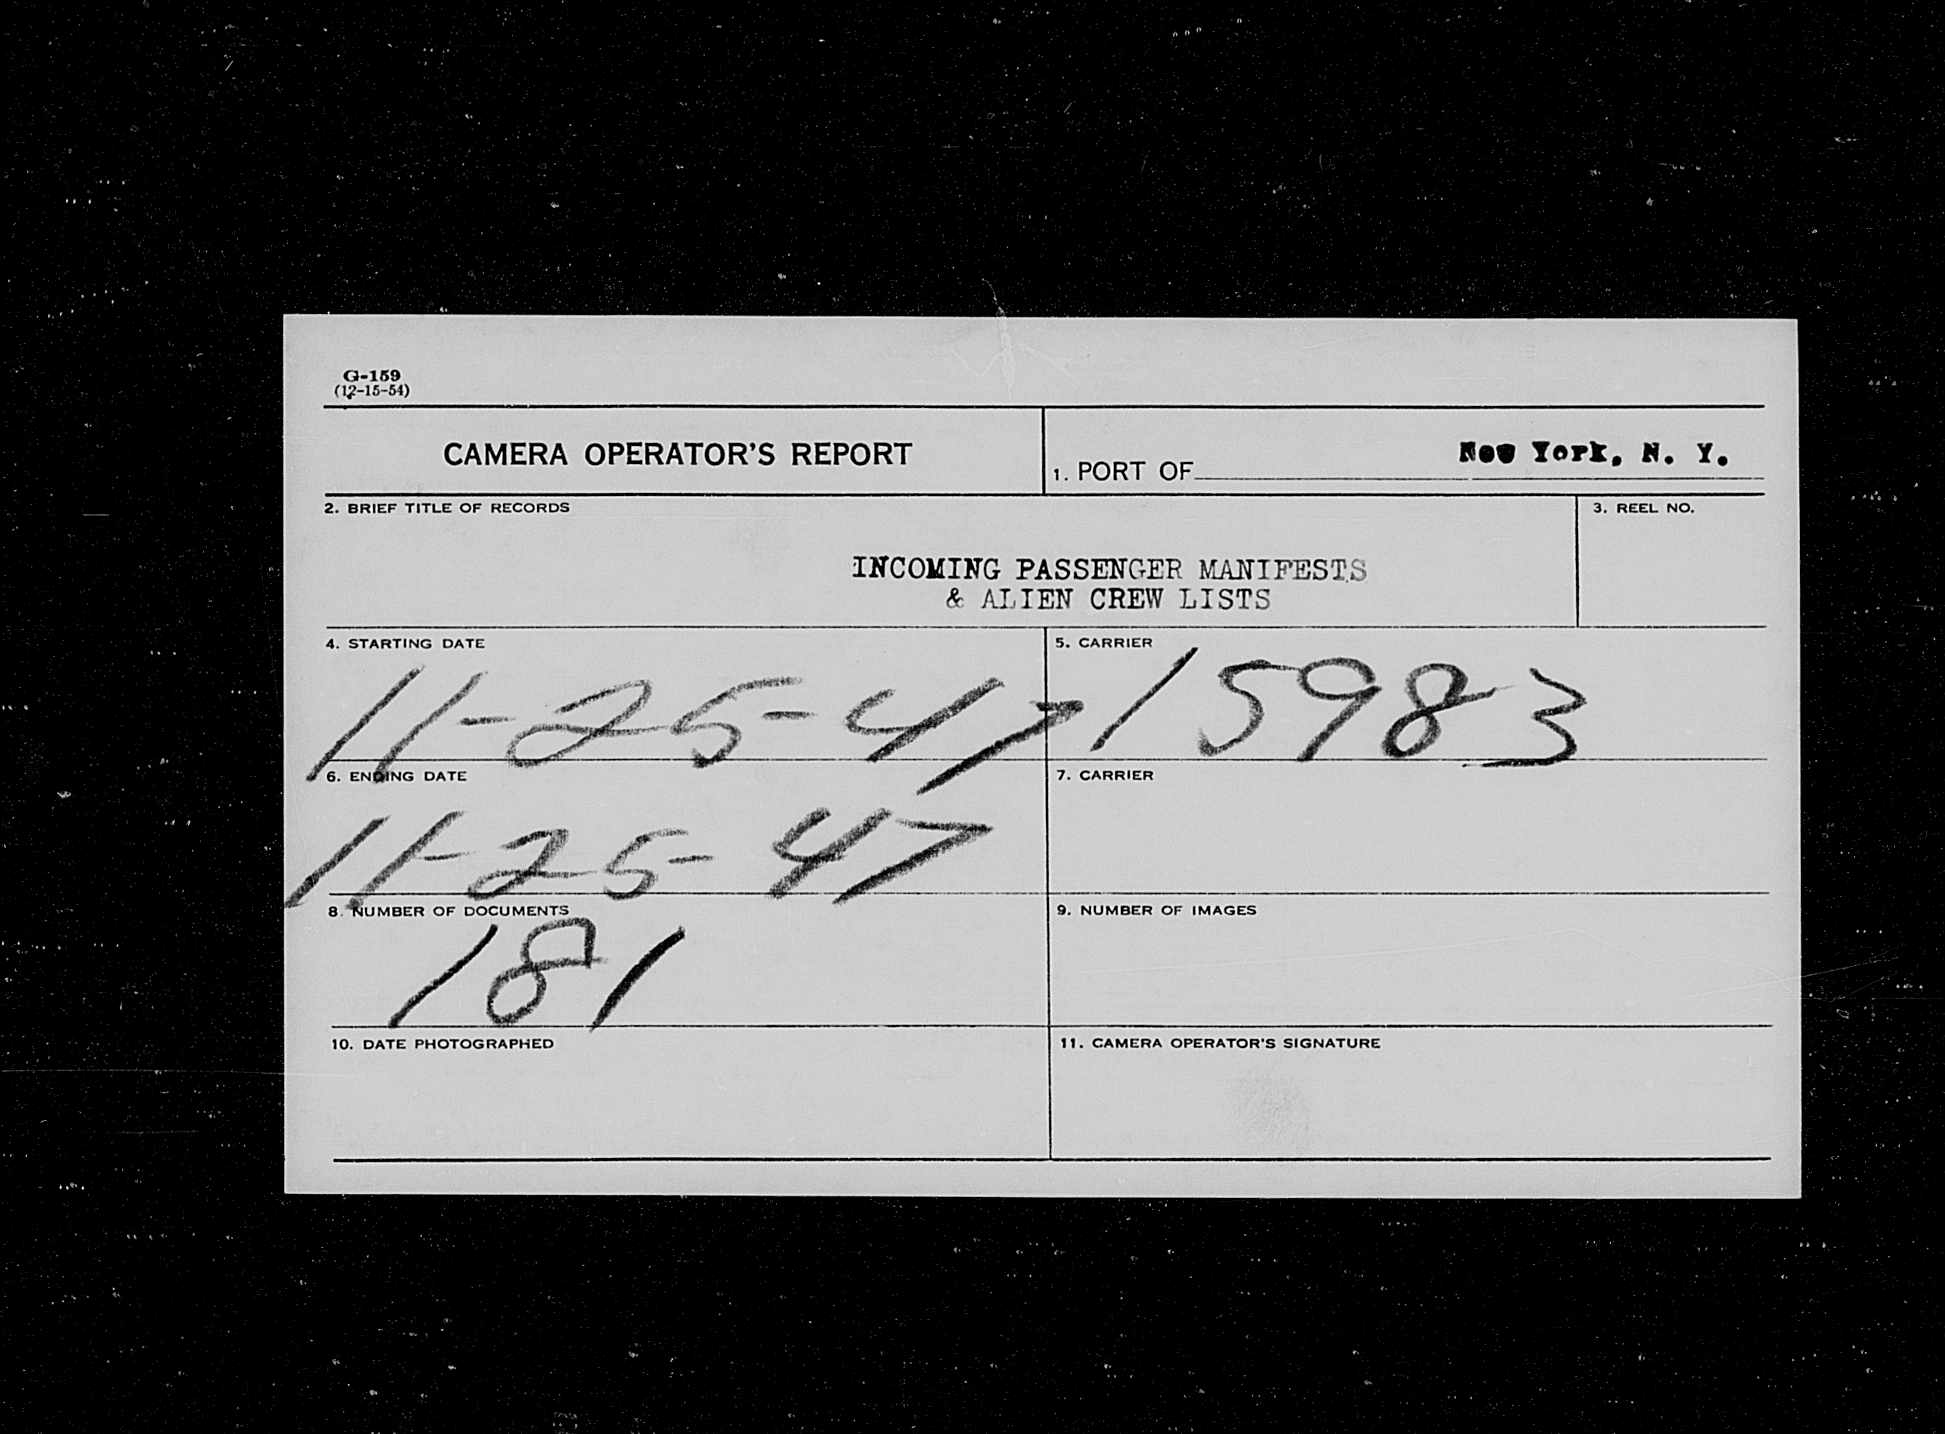 G-159
(12-15-54)
CAMERA OPERATOR'S REPORT
1. PORT OF New York, N. Y.
2. BRIEF TITLE OF RECORDS
3. REEL NO.
INCOMING PASSENGER MANIFESTS
& ALIEN CREW LISTS
4. STARTING DATE
11-25-47
5. CARRIER
15983
6. ENDING DATE
11-25-47
7. CARRIER
8. NUMBER OF DOCUMENTS
181
9. NUMBER OF IMAGES
10. DATE PHOTOGRAPHED
11. CAMERA OPERATOR'S SIGNATURE